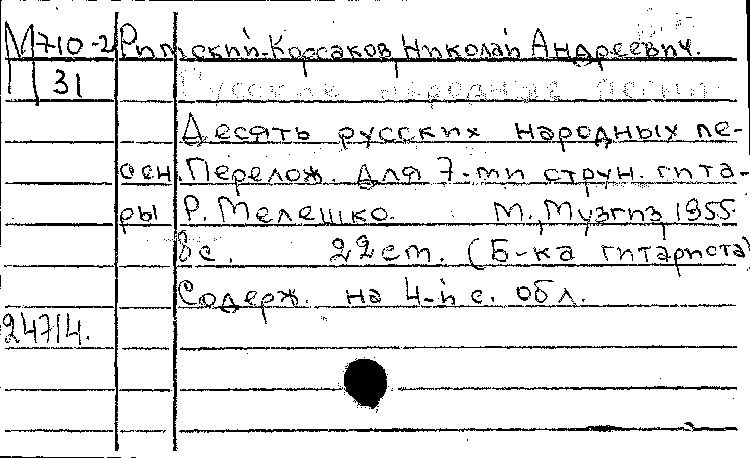 М710-2 Римский-Корсаков, Николай Андреевич.
31
Русские народные песни
Десять русских народных пе-
сен. Перелож. для 7-ми струн. гита-
ры Р. Мелешко. М., Музгиз, 1955.
8с. 22см. (Б-ка гитариста)
Содерж. на 4-й с. обл.
24714.